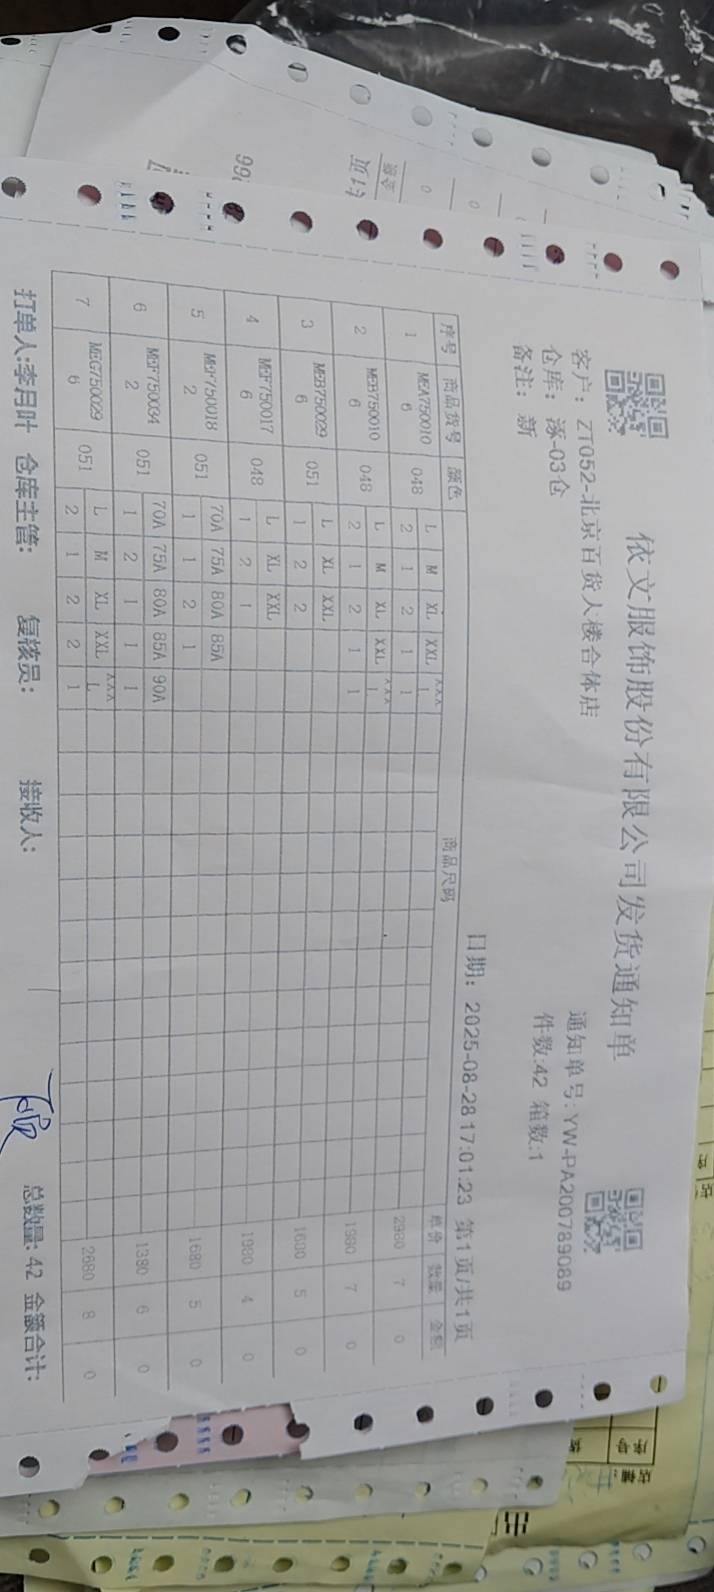 依文服饰股份有限公司发货通知单
客户: ZT052-北京百货大楼合体店 通知单号:YW-PA200789089
仓库: 涿-03仓 件数:42 箱数:1
备注: 新
日期: 2025-08-28 17:01:23 第1页/共1页
序号 商品货号 颜色 商品尺码 单价 数量 金额
1 MEA750010 6 048 L M XL XXL XXXL 2980 7 0
2 1 2 1 1
2 MEB750010 6 048 L M XL XXL XXXL 1980 7 0
2 1 2 1 1
3 MEB750029 6 051 L XL XXL 1680 5 0
1 2 2
4 MEF750017 6 048 L XL XXL 1980 4 0
1 2 1
5 MEF750018 2 051 70A 75A 80A 85A 1680 5 0
1 1 2 1
6 MEF750034 2 051 70A 75A 80A 85A 90A 1380 6 0
1 2 1 1 1
7 MEG750029 6 051 L M XL XXL XXXL 2680 8 0
2 1 2 2 1
打单人:李月叶 仓库主管: 复核员: 接收人: 总数量: 42 金额合计:
店铺:
序号